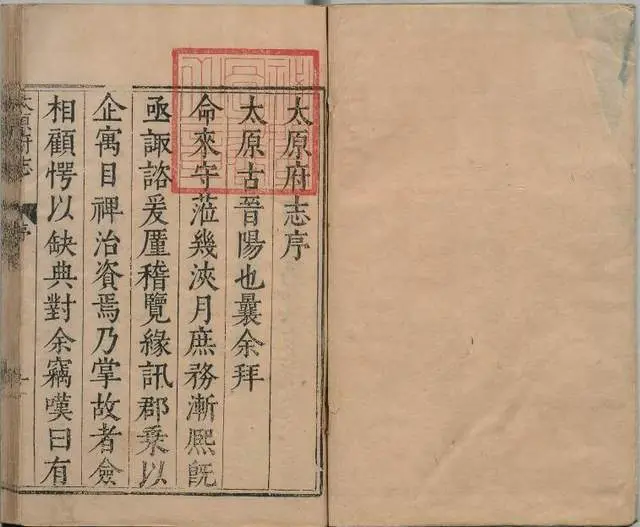 太原府志序
太原古晉陽也曩余拜
命來守蒞幾浹月庶務漸熙旣
亟諏諮爰厘稽覽緣訊郡乗以
企寓目裨治資焉乃掌故者僉
相顧愕以缺典對余竊嘆曰有
太原府志
序
一